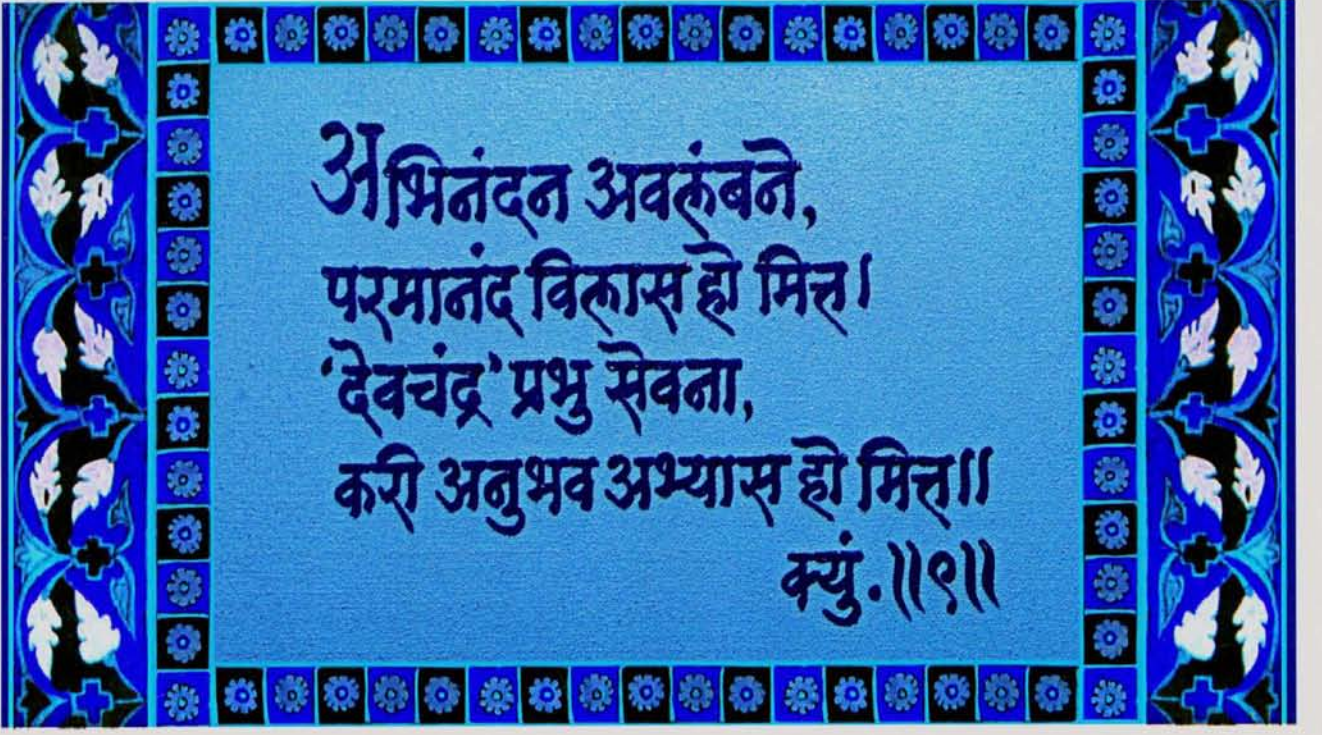 अभिनंदन अवलंबने,
परमानंद विलास हो मित्त।
‘देवचंद्र’ प्रभु सेवना,
करी अनुभव अभ्यास हो मित्त॥
क्युं.॥९॥